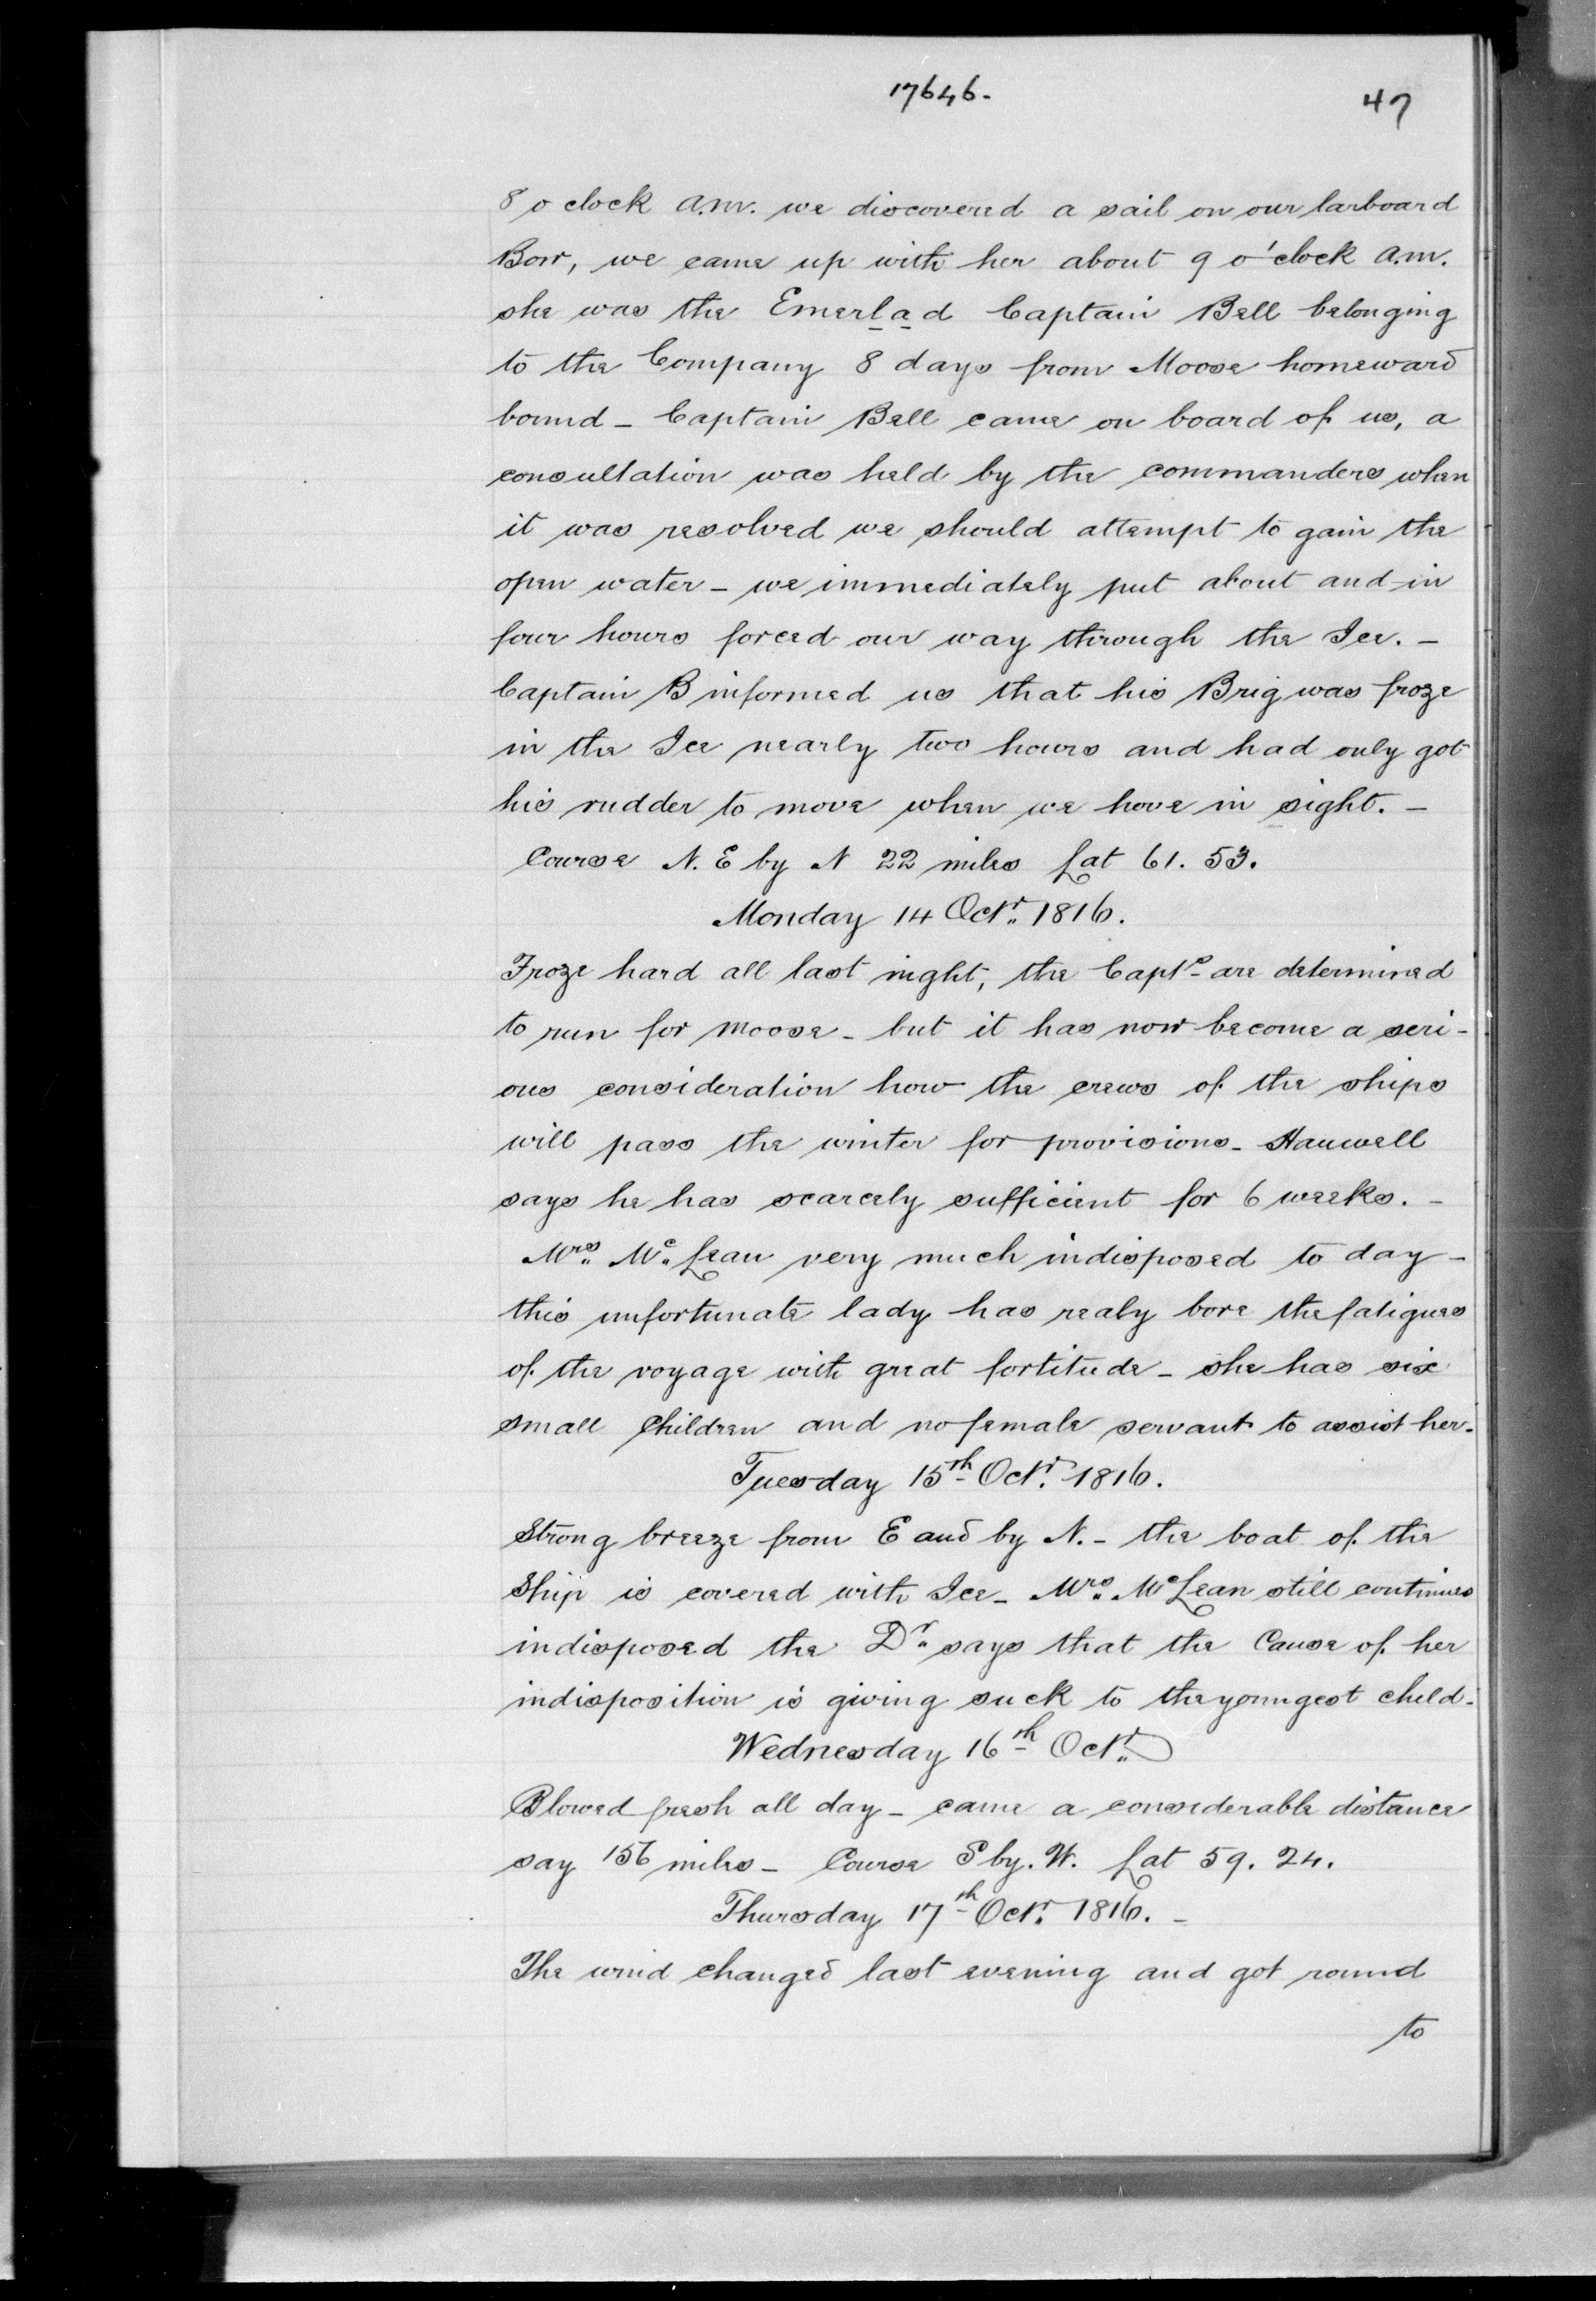 17646.
47
8 o clock a.m. we discovered a sail on our larboard
Bow, we came up with her about 9 o'clock a.m.
she was the Emerlad Captain Bell belonging
to the Company 8 days from Moose homeward
bound - Captain Bell came on board of us, a
consultation was held by the commanders when
it was resolved we should attempt to gain the
open water - we immediately put about and in
four hours forced our way through the Ice. -
Captain B informed us that his Brig was froze
in the Ice nearly two hours and had only got
his rudder to move when we hove in sight. -
Course N. E by N 22 miles Lat 61. 53.
Monday 14 Octr. 1816.
Froze hard all last night, the Capts are determined
to run for Moose - but it has now become a seri-
ous consideration how the crews of the ships
will pass the winter for provisions - Hanwell
says he has scarcely sufficient for 6 weeks. -
Mrs. Mc.Lean very much indisposed to day -
this unfortunate lady has realy bore the fatigues
of the voyage with great fortitude - she has six
small Children and no female servant to assist her.
Tuesday 15th Octr. 1816.
Strong breeze from E and by N. - the boat of the
Ship is covered with Ice - Mrs. McLean still continues
indisposed the Dr. says that the Cause of her
indisposition is giving suck to the youngest child.
Wednesday 16th Octr.
Blowed fresh all day - came a considerable distance
say 156 miles - Course S by. W. Lat 59. 24.
Thursday 17th Octr. 1816. -
The wind changed last evening and got round
to